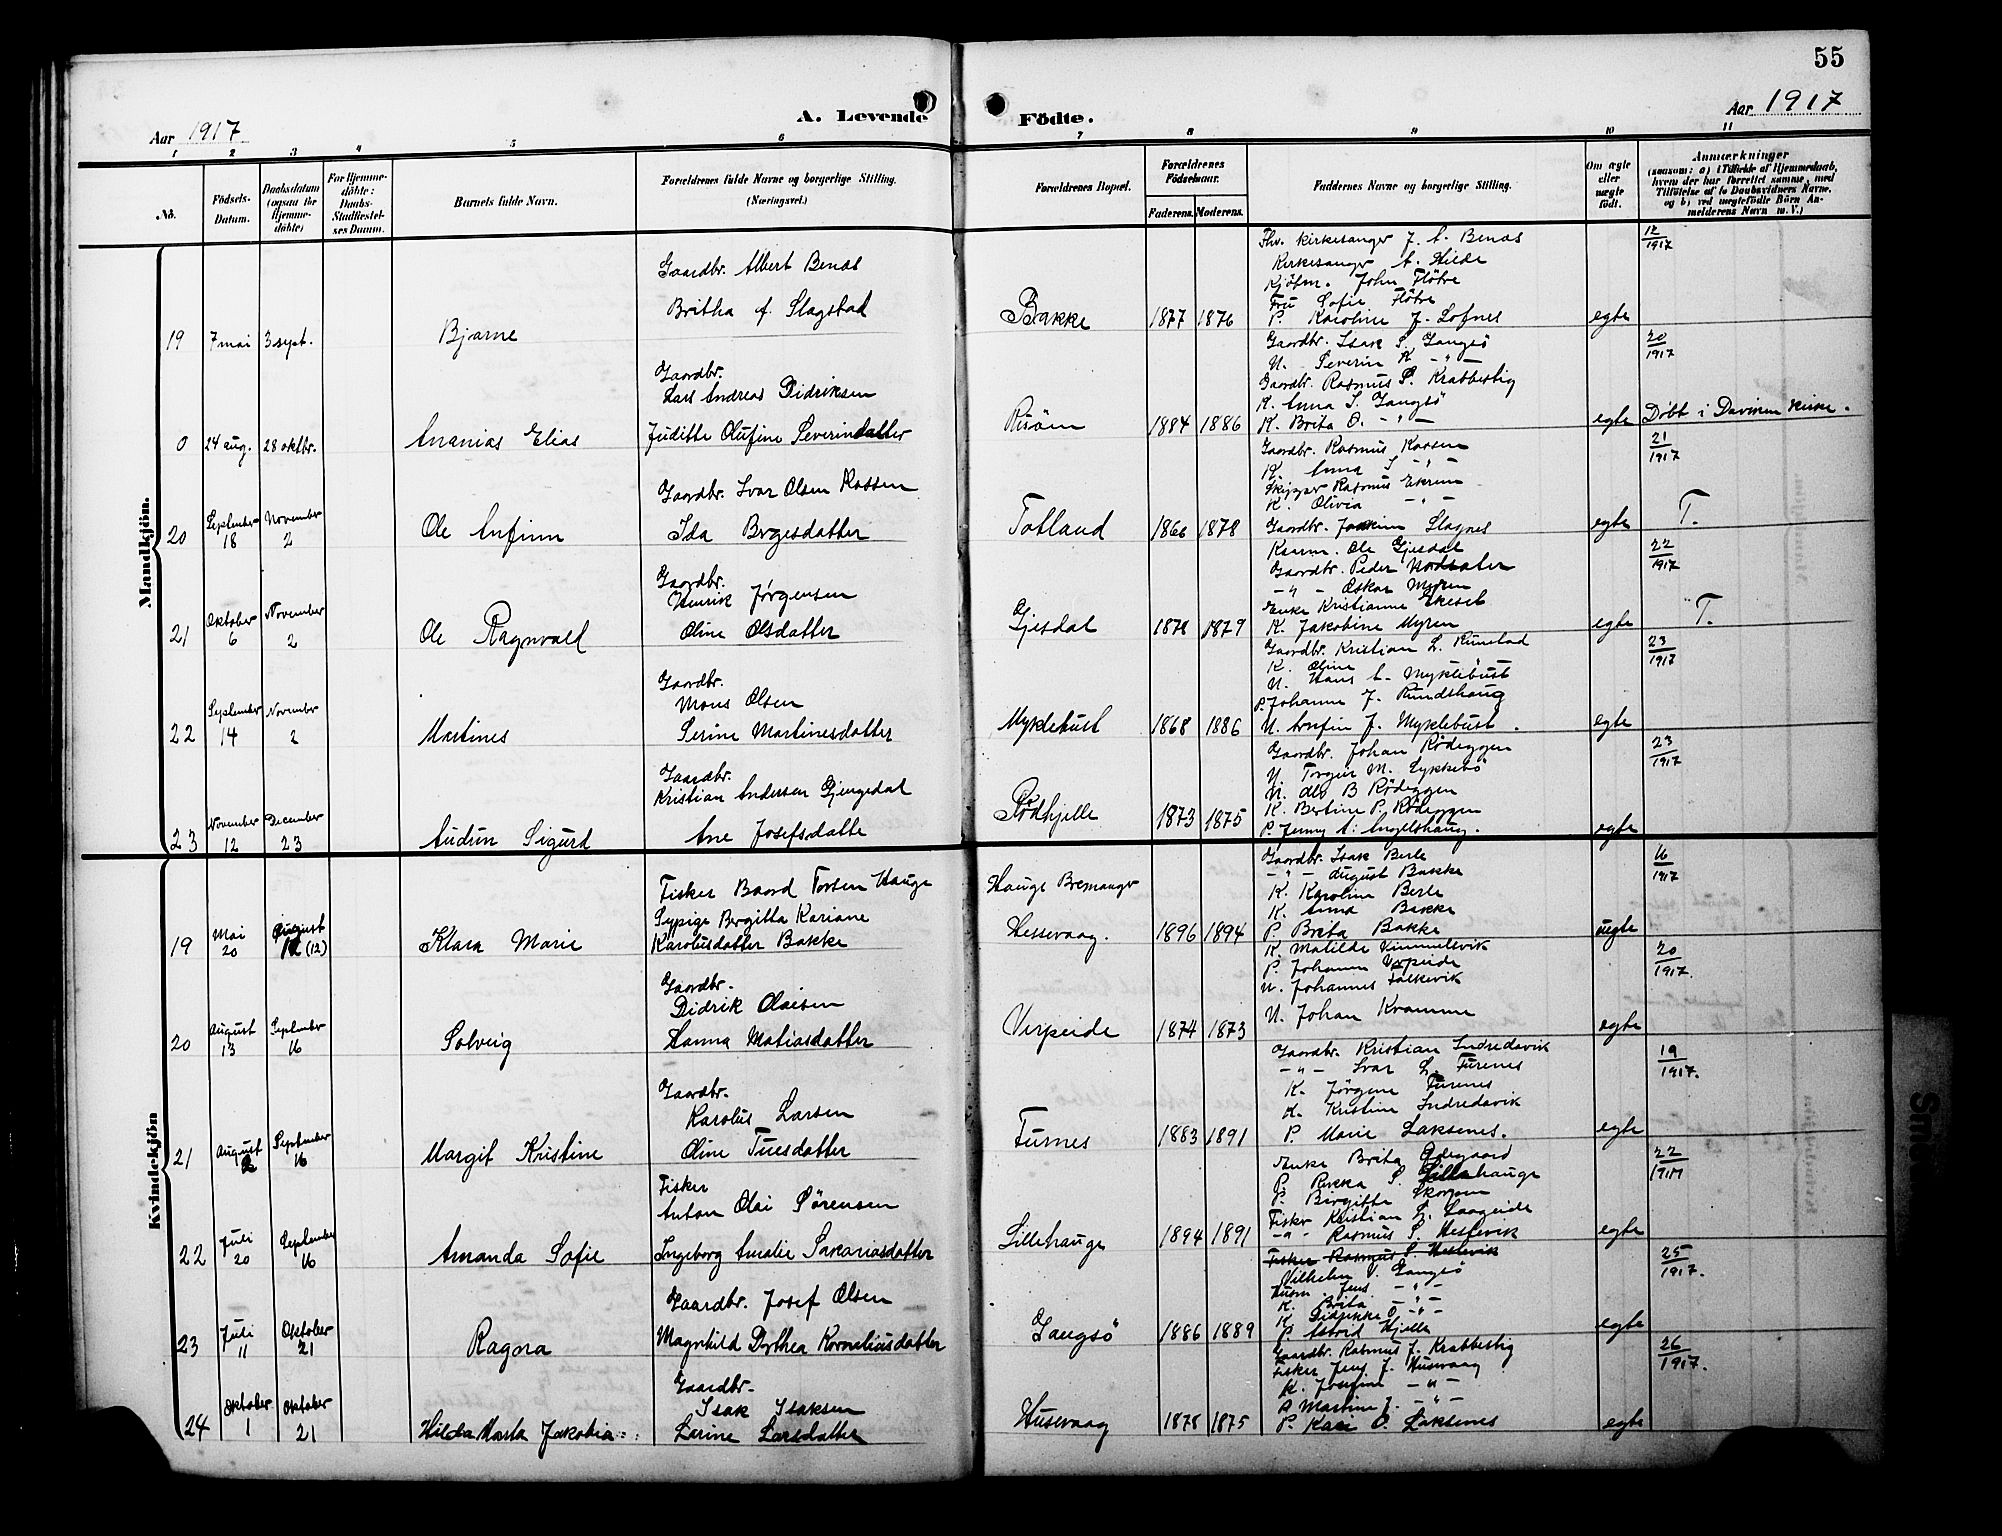 55
Aar 1917
A. Levende
Födte.
Aar 1917
1 2 3 4 5 6 7 8 9 10 11
No.
Födsels-
Datum.
Daabsdatum
(ogsaa for
Hjemme-
döbte)
For Hjemme-
döbte:
Daabs-
Stadfæstel-
ses Datum.
Barnets fulde Navn.
Forældrenes fulde Navne og borgerlige Stilling.
(Næringsvei.)
Forældrenes Bopæl.
Forældrenes
Födselsaar.
Faderens. Moderens.
Faddernes Navne og borgerlige Stilling.
Om ægte
eller
uægte
födt.
Anmærkninger
(saasom: a) i Tilfælde af Hjemmedaab,
hvem der har forrettet samme, med
Tilföielse af to Daabsvidners Navne,
og b) ved uægtefödte Börn An-
melderens Navn m. V.)
Mandkjön.
19 7 mai 3 sept. Bjarne
Gaardbr. Albert Benas
Britha f. Slagstad
Bakke 1877 1876
Fhv. Kirkesanger J. A. Benas
Kirkesanger A. Hilde
Kjöbm. John Flötre
Fru Sofie Flötre
P. Karoline J. Lofnes
egte
12/1917
0 24 aug. 28 oktbr. Ananias Elias
Gaardbr.
Lars Andreas Didriksen
Juditte Olufine Severindatter
Risöen 1884 1886
Gaardbr. Isak S. Gangsö
U. Severin K -"-
Gaardbr. Rasmus P. Krabbestig
K. Anna S. Gangsö
K. Brita O. -"-
egte
20/1917
Döbt i Daviken Kirke.
20 September 18 November 2 Ole Anfinn
Gaardbr. Ivar Olsen Rossen
Ida Brgesdatter
Totland 1866 1878
Gaardbr. Rasmus Rossen
K. Anna S -"-
Skipper Rasmus Ekrem
K. Olivia -"-
Gaardbr. Joakim Slagnes
egte
21/1917
T.
21 Oktober 6 November 2 Ole Ragnvald
Gaardbr.
Henrik Jørgensen
Oline Olsdatter
Gjesdal 1878 1879
Ole Gjesdal
Gaardbr. Peder Nordsæter
-"- Oskar Myren
Enke Kristianne Ekeset
K. Jakobine Myren
egte
22/1917
T.
22 September 14 November 2 Martines
Gaardbr.
Mons Olsen
Serine Martinesdatter
Myklebust 1868 1886
Gaardbr. Kristian L. Rimstad
K. Oline
U. Hans A. Myklebust
P. Johanne J. Rundshaug
U. Anfin J. Myklebust.
egte
23/1917
23 November 12 December 23 Audun Sigurd
Gaardbr.
Kristian Andersen Gjengedal
Ane Josefsdatte
Rödhjelle 1873 1875
Gaardbr. Johan Rödeggen
U. Torgeir M. Lykkebö
U. B Rödeggen
K. Bertine P. Rödeggen
P. Jenny A. Engelshaug.
egte
23/1917
Kvindekjön
19 Mai 20 August 12 (12) Klara Marie
Fisker Baard Torsten Hauge
Sypige Bergitta Kariane
Karolusdatter Bakke
Hauge Bremanger
Hessevaag. 1896 1894
Gaardbr. Isak Berle
-"- August Bakke
K. Karoline Berle
K. Anna Bakke
P. Brita Bakke
uegte
16/1917
20 August 13 September 16 Solveig
Gaardbr.
Didrik Olaisen
Hanna Matiasdatter
Verpeide 1874 1873
K. Matilde Vimmelsvik
P. Johanna Verpeide
U. Johannes Falkevik
U. Johan Kramme
egte
20/1917.
21 August September 16 Margit Kristine
Gaardbr.
Karolus Larsen
Oline Tuesdatter
Furnes 1883 1891
Gaardbr. Kristian Indredavik
-"- Ivar L. Furenes
K. Jörgine Furenes
K. Kristine Indredavik
P. Marie Laksenes.
egte
19/1917.
22 Juli 20 September 16 Amanda Sofie
Fisker
Anton Olai Sörensen
Ingeborg Amalie Sakariasdatter
Lillehauge 1894 1891
Enke Brita Ødegaard
P. Rikka S. Lillehauge
P. Birgitte Skorpen
Fisker Kristian L. Laageide
-"- Rasmus S. Hessevik
egte
22/1917
23 Juli 11 Oktober 21 Ragna
Gaardbr. Josef Olsen
Magnhild Dorthea Korneliusdatter
Gangsö 1886 1889
Fisker Rasmus S. Hessevik
Vilhelm V. Gangsö
Husm. Jens -"-
K. Brita -"-
K. Didrikke O -"-
P. Astrid Hjelle
egte
25/1917.
24 Oktober 1 Oktober 21 Hilda Marta Jakobia
Gaardbr.
Isak Isaksen
Lerine Larsdatter
Husevaag 1878 1875
Gaardbr. Rasmus J. Krabbestig
Fisker Jens J. Husevaag
K. Josefine -"-
P Martine J. -"-
P. Kari O. Laksenes
egte
26/1917.